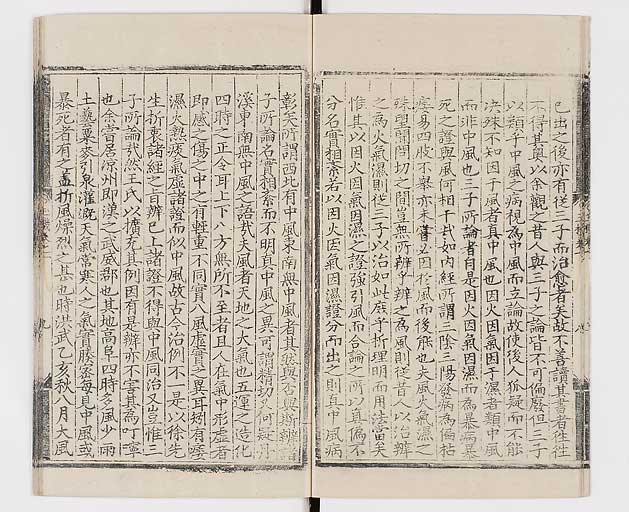 已出之後亦有從三子而治愈者矣故不善讀其書者往往
不得其奧以余觀之昔人與三子之論皆不可偏廢但三子
以類乎中風之病視為中風而立論故使後人狐疑而不能
決殊不知因于風者真中風也因火因氣因于濕者類中風
而非中風也三子所論者自是因火因氣因濕而為暴病暴
死之證與風何相干哉如內經所謂三陰三陽發病為偏枯
痿易四肢不舉亦未嘗必因於風而後能也夫風火氣濕之
殊望聞問切之間豈無所辨乎辨之為風則從昔人以治辨
之為火氣濕則從三子以治如此庶乎析理明而用法當矣
惟其以因火因氣因濕之證強引風而合論之所以真偽不
分名實相紊若以因火因氣因濕證分而出之則真中風病
彰矣所謂西北有中風東南無中風者其然與否與斯辨
子所論名實相紊而不明真中風之異可謂精切矣何疑丹
溪東南無中風之語哉夫風者天地之大氣也五運之造化
四時之正令耳上下八方無所不至者且人在氣中形虛者
即感之傷之中之有輕重不同實八風虛實之異耳矧有痿
濕火熱痰氣虛諸證而似中風故古今治例不一是以徐先
生折衷諸經之旨辨已上諸證不得與中風同治又豈惟三
子所論哉然王氏以擴充其例因有是辨亦不害其為叮嚀
也余嘗居涼州即漢之武威郡也其地高阜四時多風少雨
土藝粟麥引泉灌溉天氣常寒人之氣實腠密每見中風或
暴死者有之蓋折風燥烈之甚也時洪武乙亥秋八月大風